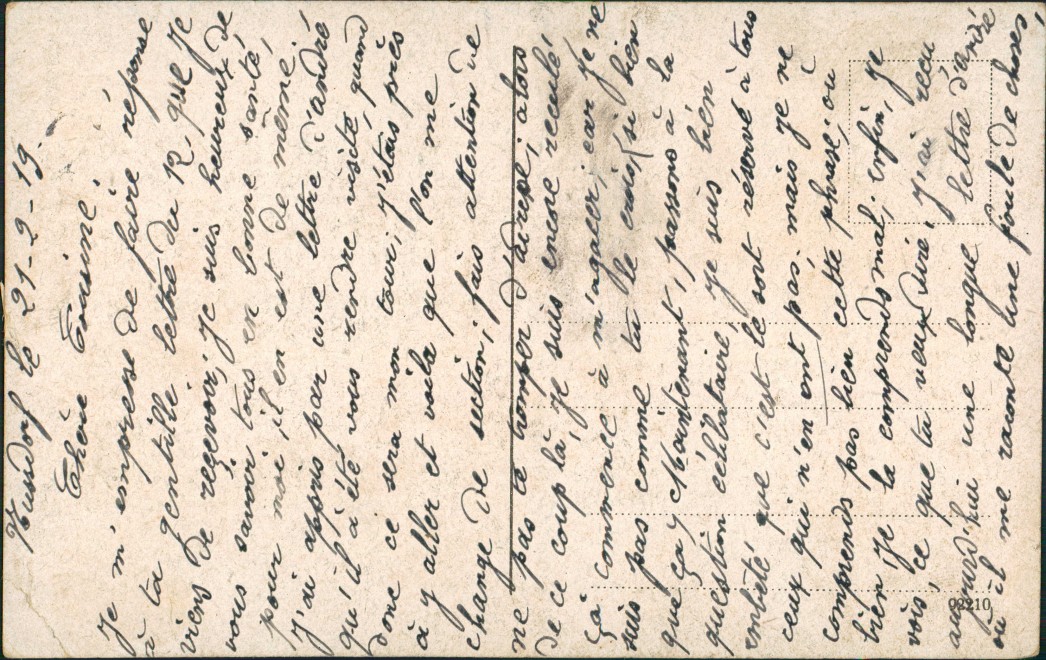 Nussdorf le 21-2-19.
Chère Emuimé.
Je m'empresse de faire réponse
à ta gentille lettre du 12 que Je
viens de reçevoir, Je suis heureux de
vous savoir tous en bonne santé,
pour moi, il en est de même,
J'ai appris par une lettre d'andré
qu'il à été vous rendre visite quand
donc ce sera mon tour, J'étais près
à y aller et voila que l'on me
change de section, fais attention de
ne pas te tromper d'adresse, alors
de ce coup là, Je suis encore reculé
çà commence à m'agacer, car Je ne
suis pas comme tu le crois, si bien
que ça, Maintenant, passons à la
question célibataire, Je suis bien
embêté que c'est le sort réservé à tous
ceux qui n'en ont pas, mais je ne
comprends pas bien cette phrase, ou
bien Je la comprends mal, enfin, Je
vois ce que tu veux dire. J'ai reçu
aujourd'hui une longue lettre d'andré
où il me raconte une foule de choses,
92210